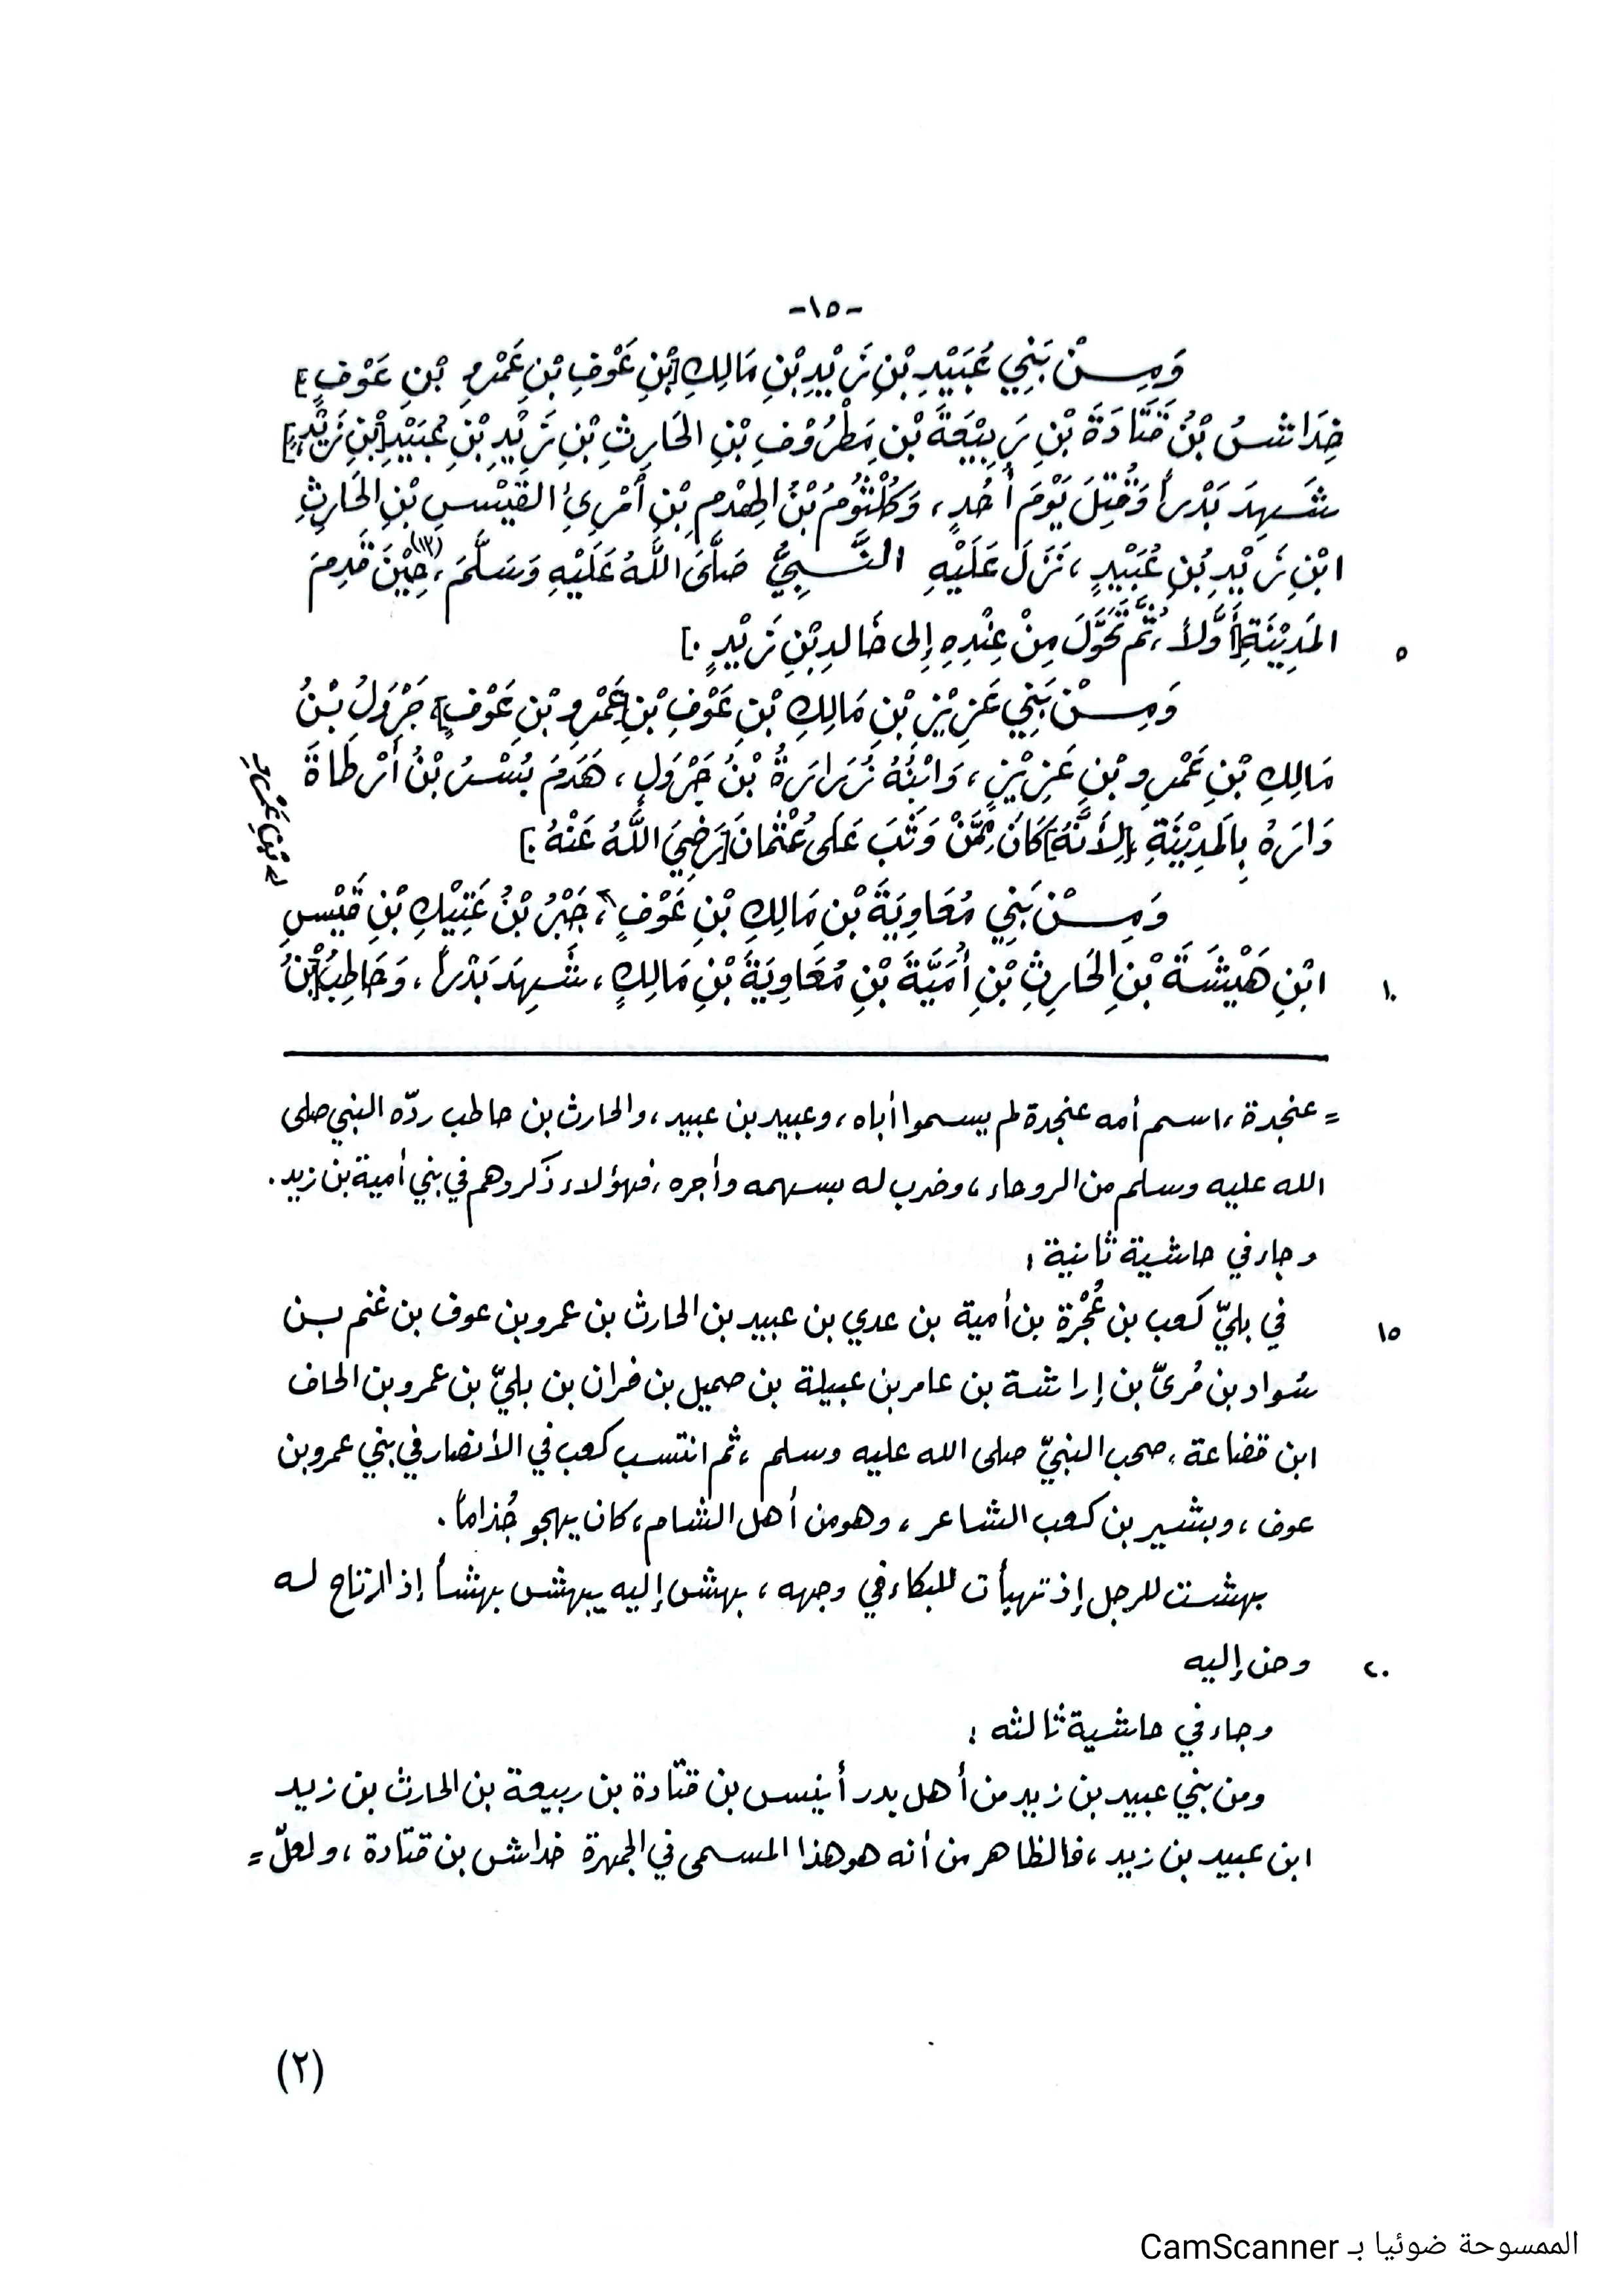 -١٥-
وَمِـــنْ بَنِي عُبَيْدِ بْنِ زَيْدِ بْنِ مَالِكِ [بْنِ عَوْفِ بْنِ عَمْرِو بْنِ عَوْفٍ]
خِدَاشُ بْنُ قَتَادَةَ بْنِ رَبِيْعَةَ بْنِ مَطْرُوْفِ بْنِ الحَارِثِ بْنِ زَيْدِ بْنِ عُبَيْدِ [بْنِ زَيْدٍ،]
شَهِدَ بَدْراً وَقُتِلَ يَوْمَ أُحُدٍ، وَكُلْثُوْمُ بْنُ الهِدْمِ بْنِ أمْرِئِ القَيْسِ بْنِ الحَارِثِ
ابْنِ زَيْدِ بْنِ عُبَيْدٍ، نَزَلَ عَلَيْهِ النَّبِيُّ صَلَّى اللَّهُ عَلَيْهِ وَسَلَّمَ، (١٣) حِيْنَ قَدِمَ
المَدِيْنَةِ [أَوَّلاً، ثُمَّ تَحَوَّلَ مِنْ عِنْدِهِ إِلى خَالِدِ بْنِ زَيْدٍ.] ٥
وَمِـــنْ بَنِي عَزِيْزِ بْنِ مَالِكِ بْنِ عَوْفِ بْنِ [عَمْرِو بْنِ عَوْفٍ] جَرْوَلُ بْنُ
مَالِكِ بْنِ عَمْرِو بْنِ عَزِيْزٍ، وَابْنُهُ زُرَارَةُ بْنُ جَرْوَلٍ، هَدَمَ بُسْرُ بْنُ أَرْطَاةَ
دَارَهُ بِالمَدِيْنَةِ [لِأَنَّهُ] كَانَ مِمَّنْ وَثَبَ عَلى عُثْمَانَ [رَضِيَ اللَّهُ عَنْهُ.]
وَمِـــنْ بَنِي مُعَاوِيَةَ بْنِ مَالِكِ بْنِ عَوْفٍ، جَبْرُ بْنُ عَتِيْكِ بْنِ قَيْسِ
ابْنِ هَيْشَةَ بْنِ الحَارِثِ بْنِ أُمَيَّةَ بْنِ مُعَاوِيَةَ بْنِ مَالِكٍ، شَهِدَ بَدْراً، وَحَاطِبُ [بْنُ ١٠
بْنِ عَمْرِو
= عنجدة، اسم أمه عنجدة لم يسموا أباه، وعبيد بن عبيد، والحارث بن حاطب ردّه النبي صلى
الله عليه وسلم من الروحاء، وضرب له بسهمه وأجره، فهؤلاء ذكروهم في بني أمية بن زيد.
وجاء في حاشية ثانية:
في بليّ كعب بن عُجْرة بن أمية بن عدي بن عبيد بن الحارث بن عمرو بن عوف بن غنم بـــن ١٥
سُواد بن مُريّ بن إراشة بن عامر بن عبيلة بن صميل بن فران بن بليّ بن عمرو بن الحاف
ابن قضاعة، صحب النبيّ صلى الله عليه وسلم، ثم انتسب كعب في الأنصار في بني عمرو بن
عوف، وبشير بن كعب الشاعر، وهو من أهل الشام، كان يهجو جُذاماً.
بهشت للرجل إذ تهيأت للبكاء في وجهه، بهش إليه يبهش بهشاً إذ ارتاح لـــه
وحن إليه ٢٠
وجاء في حاشية ثالثه:
ومن بني عبيد بن زيد من أهل بدر أنيس بن قتادة بن ربيعة بن الحارث بن زيد
ابن عبيد بن زيد، فالظاهر من أنه هو هذا المسمى في الجمهرة خداش بن قتادة، ولعلّ =
(٢)
الممسوحة ضوئيا بـ CamScanner